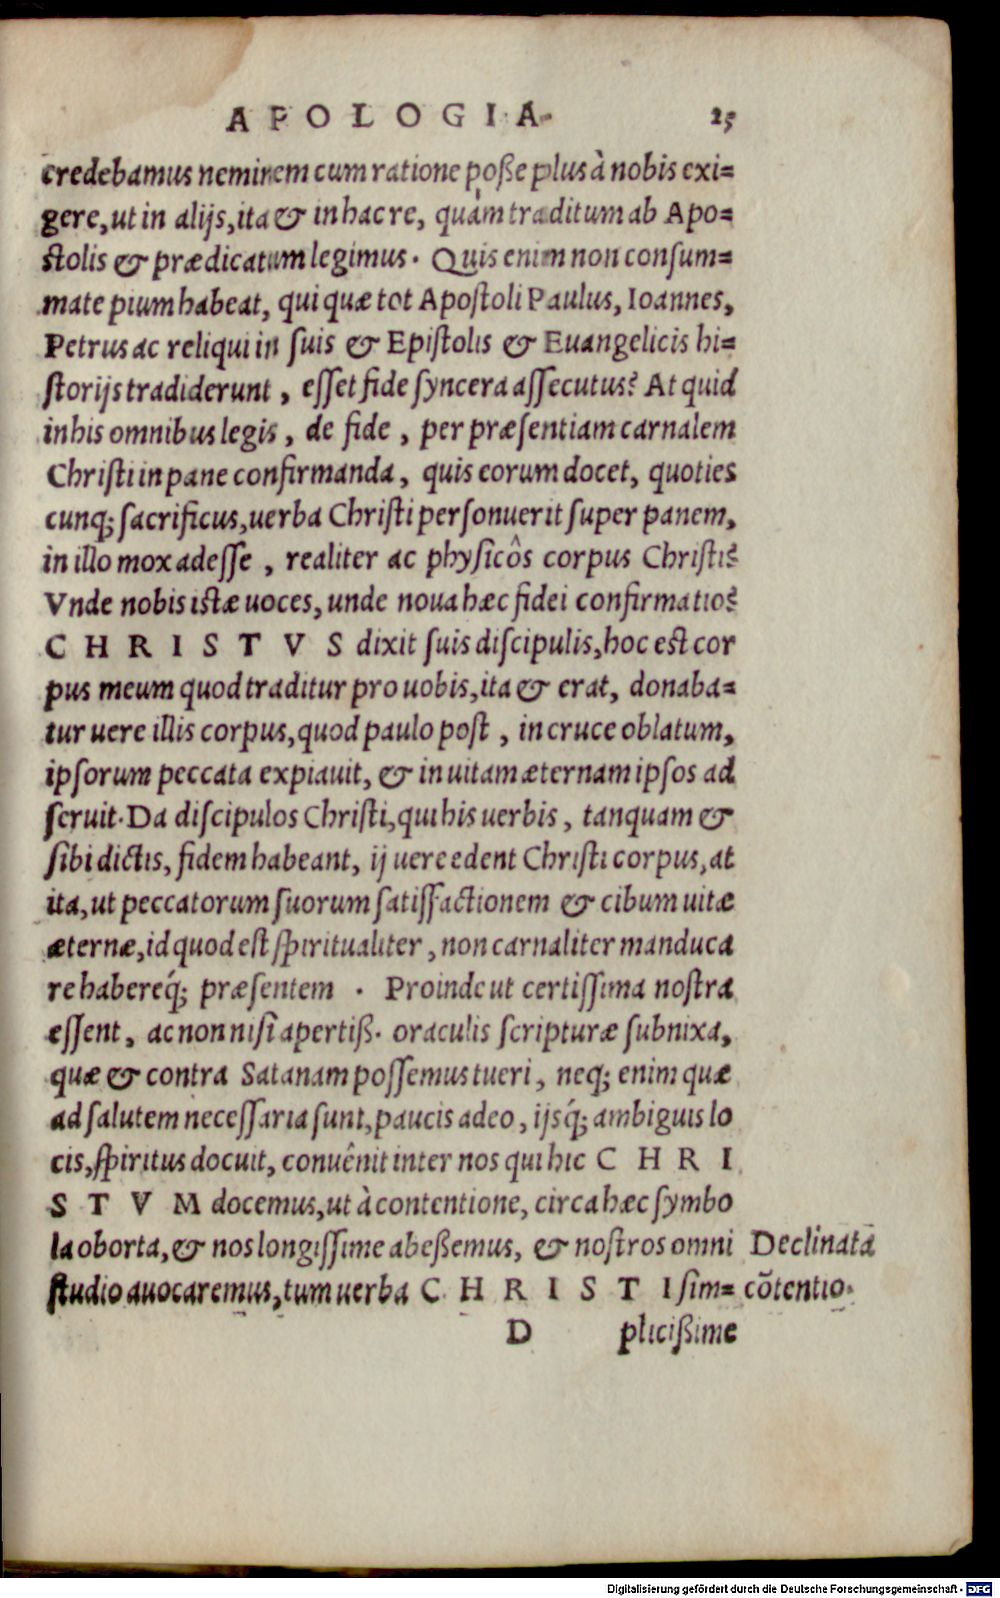 APOLOGIA. 25
credebamus neminem cum ratione poße plus à nobis exi=
gere, ut in alijs, ita & in hac re, quàm traditum ab Apo=
stolis & prædicatum legimus. Quis enim non consum=
mate pium habeat, qui quæ tot Apostoli Paulus, Ioannes,
Petrus ac reliqui in suis & Epistolis & Euangelicis hi=
storijs tradiderunt, esset fide syncera assecutus? At quid
in his omnibus legis, de fide, per præsentiam carnalem
Christi in pane confirmanda, quis eorum docet, quoties
cunq; sacrificus, uerba Christi personuerit super panem,
in illo mox adesse, realiter ac physicôs corpus Christi?
Vnde nobis istæ uoces, unde noua hæc fidei confirmatio?
CHRISTVS dixit suis discipulis, hoc est cor
pus meum quod traditur pro uobis, ita & erat, donaba=
tur uere illis corpus, quod paulo post, in cruce oblatum,
ipsorum peccata expiauit, & in uitam æternam ipsos ad
seruit. Da discipulos Christi, qui his uerbis, tanquam &
sibi dictis, fidem habeant, ij uere edent Christi corpus, at
ita, ut peccatorum suorum satisfactionem & cibum uitæ
æternæ, id quod est spiritualiter, non carnaliter manduca
re habereq́; præsentem. Proinde ut certissima nostra
essent, ac non nisi apertiß. oraculis scripturæ subnixa,
quæ & contra Satanam possemus tueri, neq; enim quæ
ad salutem necessaria sunt, paucis adeo, ijsq́; ambiguis lo
cis, spiritus docuit, conuênit inter nos qui hic CHRI
STVM docemus, ut à contentione, circa hæc symbo
la oborta, & nos longissime abeßemus, & nostros omni
studio auocaremus, tum uerba CHRISTI sim=
Declinata
cõtentio.
D plicißime
Digitalisierung gefördert durch die Deutsche Forschungsgemeinschaft - DFG